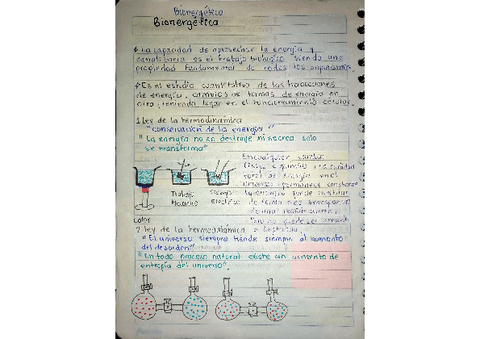 Bionergética
Bionergética
La capacidad de aprovechar la energía y
canalizarla es el trabajo biológico siendo una
propiedad fundamental de todos los organismos.
Es el estudio cuantitativo de las
de energía, cambios de formas de energía en
otra, teniendo lugar en el funcionamiento celular.
1 Ley de la termodinámica
"conservación de la energía"
"La energía no se destruye ni se crea solo
se transforma"
En cualquier cambio
físico o químico la cantidad
total de energía en el
universo permanece constante
Trabajo
Mecánico
Energía
eléctrica
Calor
2 Ley de la termodinámica
"El universo siempre tiende siempre al aumento
del desorden"
"En todo proceso natural existe un aumento de
entropía del universo".